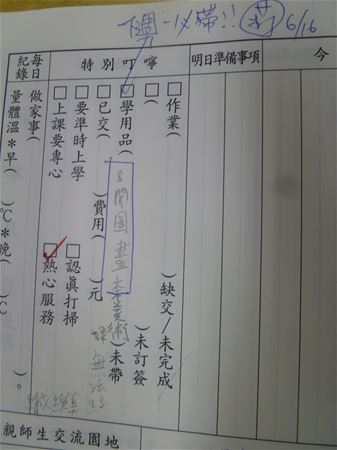 下週一必帶!! 莉 6/16
今
明日準備事項
特別叮嚀
每日紀錄
□作業( )缺交/未完成
□( )未訂簽
☑學用品(8開圖畫本美術)未帶
□已交( )費用( )元
□要準時上學 □認真打掃
□上課要專心 ☑熱心服務
做家事( )。
量體溫*早( )℃*晚( )℃
親師生交流園地